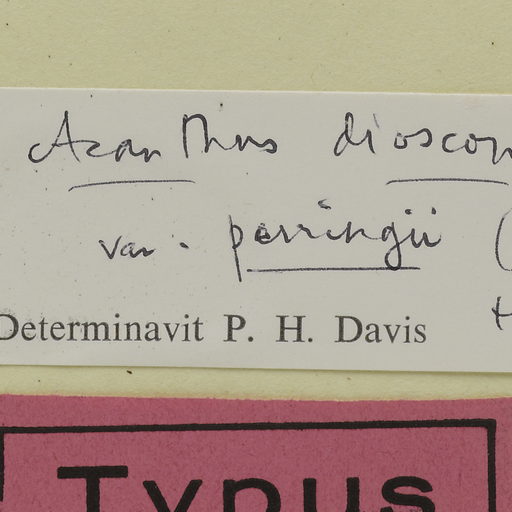 Acanthus dioscor
var. perringii (
Determinavit P. H. Davis
Typus